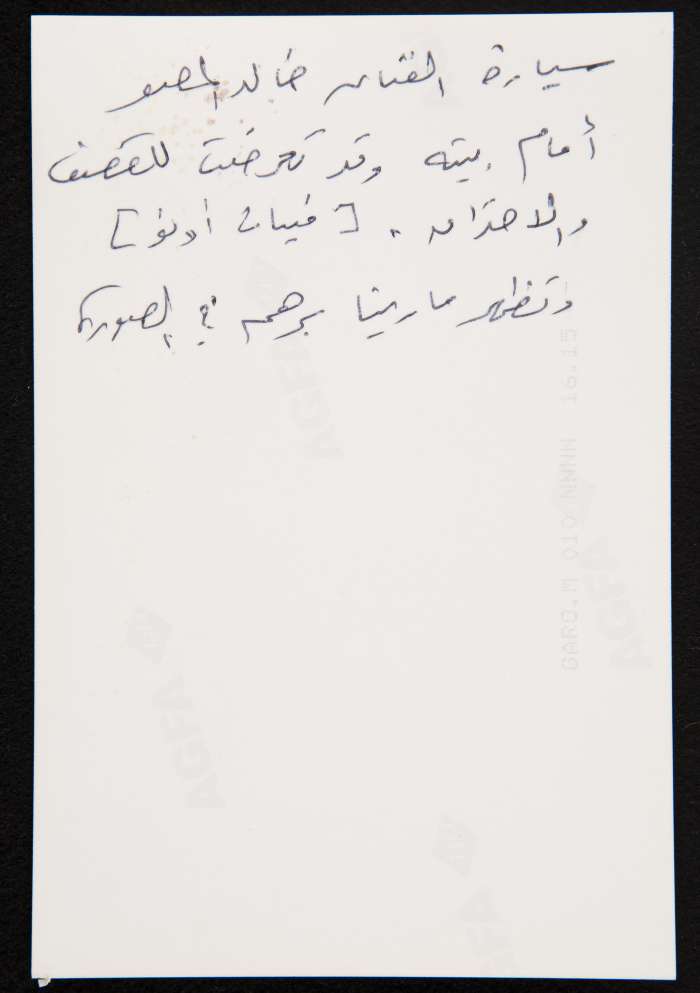 سيارة الفنان خالد المصو
أمام بيته وقد تعرضت للقصف
والاحتراق. [فيات أونو]
وتظهر مارينا برهم في الصورة
GARO.M 010 NNNN 16.15
AGFA
AGFA
AGFA
AGFA